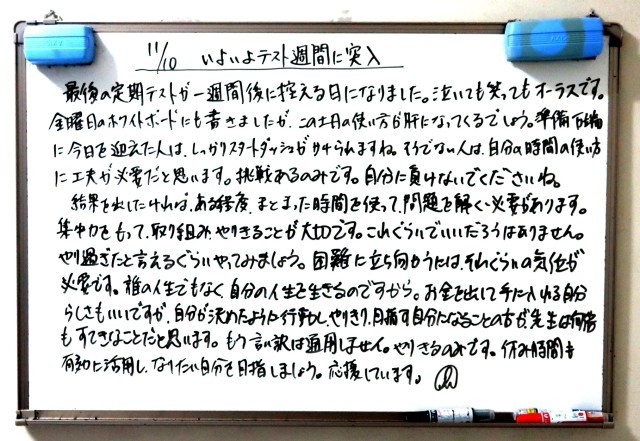 11/10 いよいよテスト週間に突入
最後の定期テストが一週間後に控える日になりました。泣いても笑ってもオーラスです。
金曜日のホワイトボードにも書きましたが、この土日の使い方が肝になってくるでしょう。準備万端
に今日を迎えた人は、しっかりスタートダッシュがかけられますね。そうでない人は、自分の時間の使い方
に工夫が必要だと思います。挑戦あるのみです。自分に負けないでくださいね。
結果を出したければ、ある程度、まとまった時間を使って、問題を解く必要があります。
集中力をもって、取り組み、やりきることが大切です。これぐらいでいいだろうはありません。
やり過ぎたと言えるぐらいやってみましょう。困難に立ち向かうには、それぐらいの気位が
必要です。誰の人生でもなく、自分の人生を生きるのですから。お金を出して手に入れる自分
らしさもいいですが、自分が決めたように行動し、やりきり、目指す自分になることの方が、先生は何倍
もすてきなことだと思います。もう言い訳は通用しません。やりきるのみです。休み時間も
有効に活用し、なりたい自分を目指しましょう。応援しています。